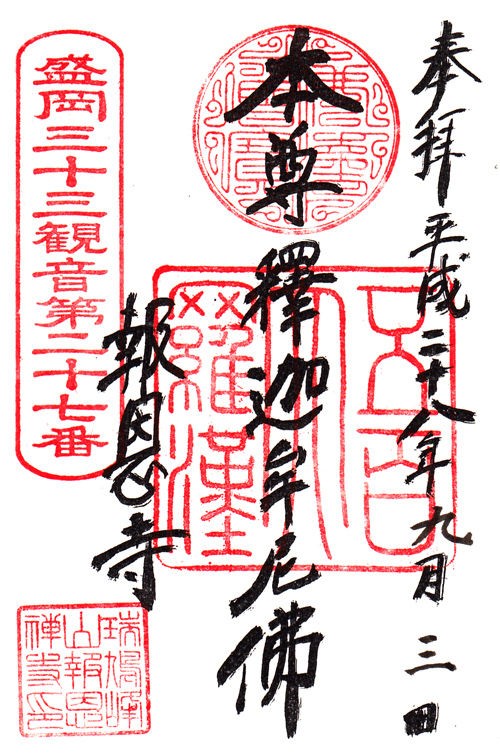 奉拝 平成二十八年九月三日
本尊 釋迦牟尼佛
五百
羅漢
報恩寺
盛岡三十三観音第二十七番
瑞鳩峰
山報恩
禅寺印